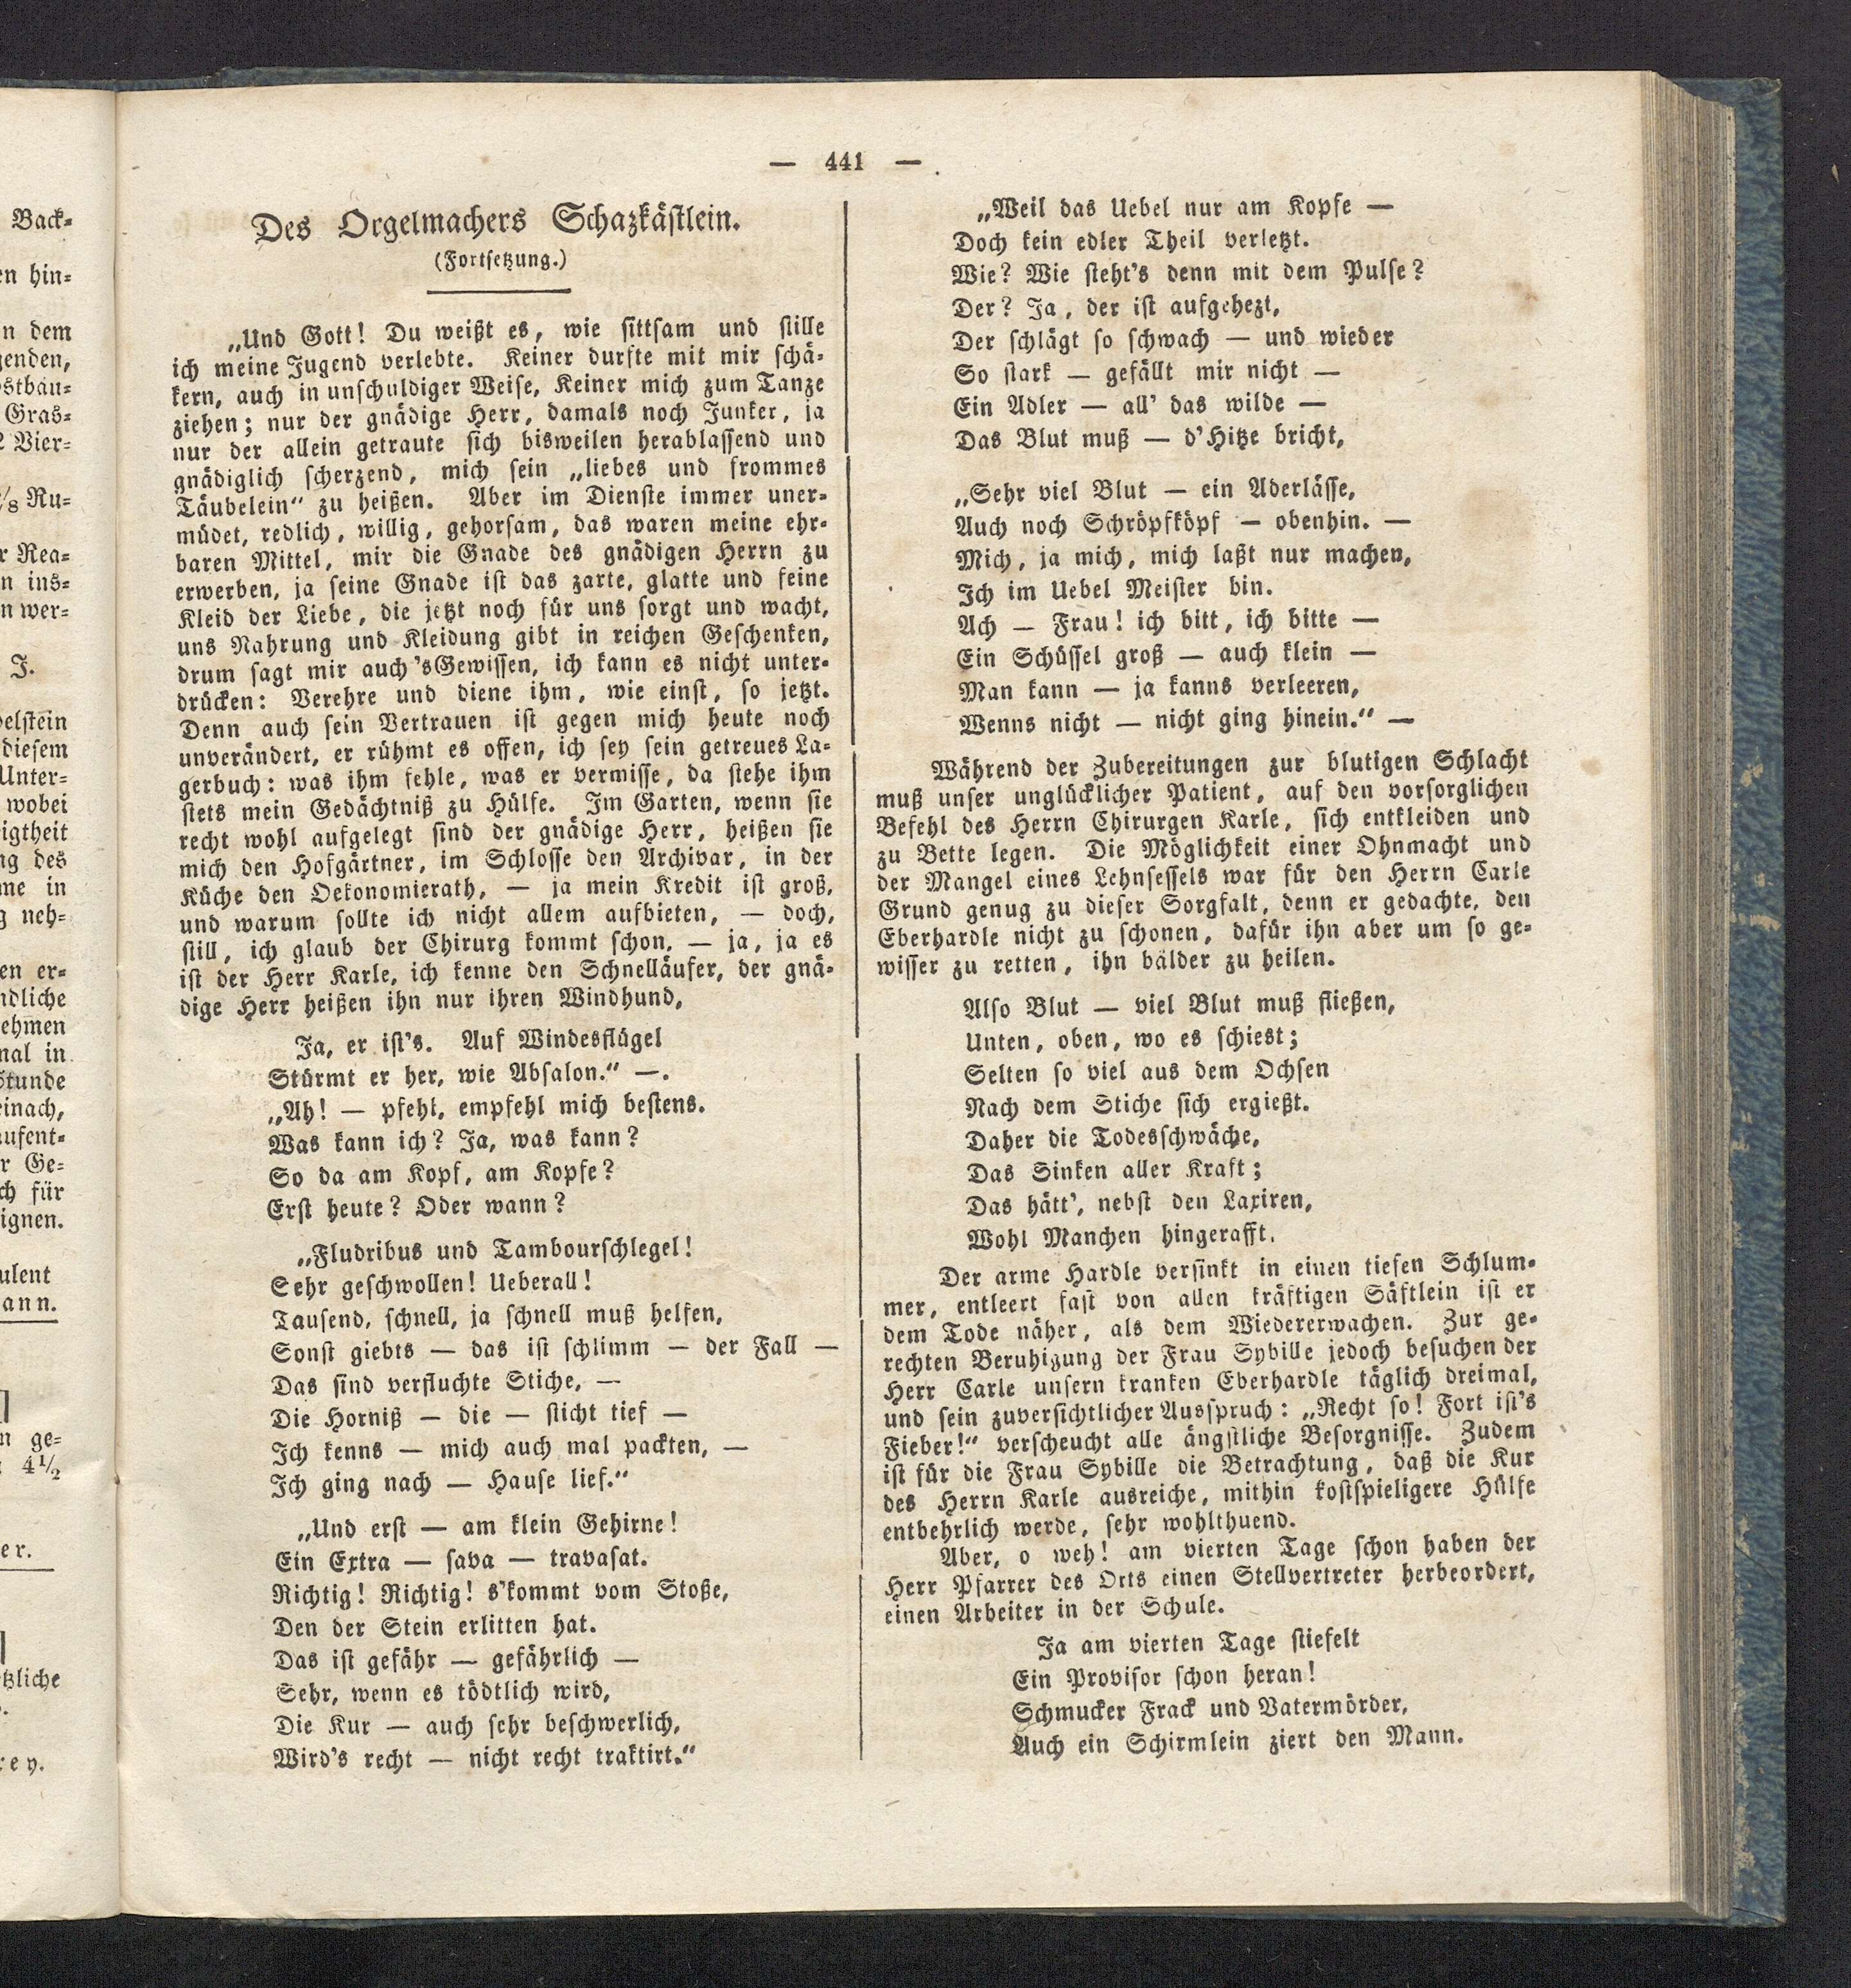 — 441 —
Des Orgelmachers Schazkästlein.
(Fortsetzung.)
„Und Gott! Du weißt es, wie sittsam und stille
ich meine Jugend verlebte. Keiner durfte mit mir schä-
kern, auch in unschuldiger Weise, Keiner mich zum Tanze
ziehen; nur der gnädige Herr, damals noch Junker, ja
nur der allein getraute sich bisweilen herablassend und
gnädiglich scherzend, mich sein „liebes und frommes
Täubelein“ zu heißen. Aber im Dienste immer uner-
müdet, redlich, willig, gehorsam, das waren meine ehr-
baren Mittel, mir die Gnade des gnädigen Herrn zu
erwerben, ja seine Gnade ist das zarte, glatte und feine
Kleid der Liebe, die jetzt noch für uns sorgt und wacht,
uns Nahrung und Kleidung gibt in reichen Geschenken,
drum sagt mir auch 'sGewissen, ich kann es nicht unter-
drücken: Verehre und diene ihm, wie einst, so jetzt.
Denn auch sein Vertrauen ist gegen mich heute noch
unverändert, er rühmt es offen, ich sey sein getreues La-
gerbuch: was ihm fehle, was er vermisse, da stehe ihm
stets mein Gedächtniß zu Hülfe. Im Garten, wenn sie
recht wohl aufgelegt sind der gnädige Herr, heißen sie
mich den Hofgärtner, im Schlosse den Archivar, in der
Küche den Oekonomierath, — ja mein Kredit ist groß,
und warum sollte ich nicht allem aufbieten, — doch,
still, ich glaub der Chirurg kommt schon, — ja, ja es
ist der Herr Karle, ich kenne den Schnelläufer, der gnä-
dige Herr heißen ihn nur ihren Windhund,
Ja, er ist's. Auf Windesflügel
Stürmt er her, wie Absalon.“ —.
„Ah! — pfehl, empfehl mich bestens.
Was kann ich? Ja, was kann?
So da am Kopf, am Kopfe?
Erst heute? Oder wann?
„Fludribus und Tambourschlegel!
Sehr geschwollen! Ueberall!
Tausend, schnell, ja schnell muß helfen,
Sonst giebts — das ist schlimm — der Fall —
Das sind verfluchte Stiche, —
Die Horniß — die — sticht tief —
Ich kenns — mich auch mal packten, —
Ich ging nach — Hause lief.“
„Und erst — am klein Gehirne!
Ein Extra — sava — travasat.
Richtig! Richtig! s'kommt vom Stoße,
Den der Stein erlitten hat.
Das ist gefähr — gefährlich —
Sehr, wenn es tödtlich wird,
Die Kur — auch sehr beschwerlich,
Wird's recht — nicht recht traktirt.“
„Weil das Uebel nur am Kopfe —
Doch kein edler Theil verletzt.
Wie? Wie steht's denn mit dem Pulse?
Der? Ja, der ist aufgehezt,
Der schlägt so schwach — und wieder
So stark — gefällt mir nicht —
Ein Adler — all' das wilde —
Das Blut muß — d'Hitze bricht,
„Sehr viel Blut — ein Aderlässe,
Auch noch Schröpfköpf — obenhin. —
Mich, ja mich, mich laßt nur machen,
Ich im Uebel Meister bin.
Ach — Frau! ich bitt, ich bitte —
Ein Schüssel groß — auch klein —
Man kann — ja kanns verleeren,
Wenns nicht — nicht ging hinein.“ —
Während der Zubereitungen zur blutigen Schlacht
muß unser unglücklicher Patient, auf den vorsorglichen
Befehl des Herrn Chirurgen Karle, sich entkleiden und
zu Bette legen. Die Möglichkeit einer Ohnmacht und
der Mangel eines Lehnsessels war für den Herrn Carle
Grund genug zu dieser Sorgfalt, denn er gedachte, den
Eberhardle nicht zu schonen, dafür ihn aber um so ge-
wisser zu retten, ihn bälder zu heilen.
Also Blut — viel Blut muß fließen,
Unten, oben, wo es schiest;
Selten so viel aus dem Ochsen
Nach dem Stiche sich ergießt.
Daher die Todesschwäche,
Das Sinken aller Kraft;
Das hätt', nebst den Laxiren,
Wohl Manchen hingerafft.
Der arme Hardle versinkt in einen tiefen Schlum-
mer, entleert fast von allen kräftigen Säftlein ist er
dem Tode näher, als dem Wiedererwachen. Zur ge-
rechten Beruhigung der Frau Sybille jedoch besuchen der
Herr Carle unsern kranken Eberhardle täglich dreimal,
und sein zuversichtlicher Ausspruch: „Recht so! Fort ist's
Fieber!“ verscheucht alle ängstliche Besorgnisse. Zudem
ist für die Frau Sybille die Betrachtung, daß die Kur
des Herrn Karle ausreiche, mithin kostspieligere Hülfe
entbehrlich werde, sehr wohlthuend.
Aber, o weh! am vierten Tage schon haben der
Herr Pfarrer des Orts einen Stellvertreter herbeordert,
einen Arbeiter in der Schule.
Ja am vierten Tage stiefelt
Ein Provisor schon heran!
Schmucker Frack und Vatermörder,
Auch ein Schirmlein ziert den Mann.